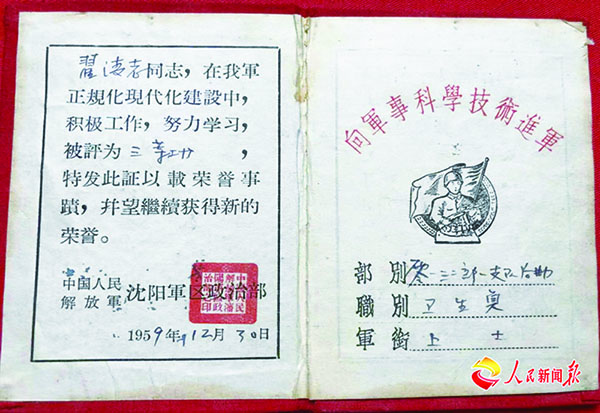 同志，在我軍
正規化現代化建設中，
积极工作，努力学习，
被評为 三 ，
特发此証以載荣誉事
蹟，幷望繼續获得新的
荣誉。
中国人民
解放軍
沈阳軍区政治部
1959年12月30日
向軍事科學技術進軍
部別
職別 卫生員
軍銜 上 士
人民新闻报